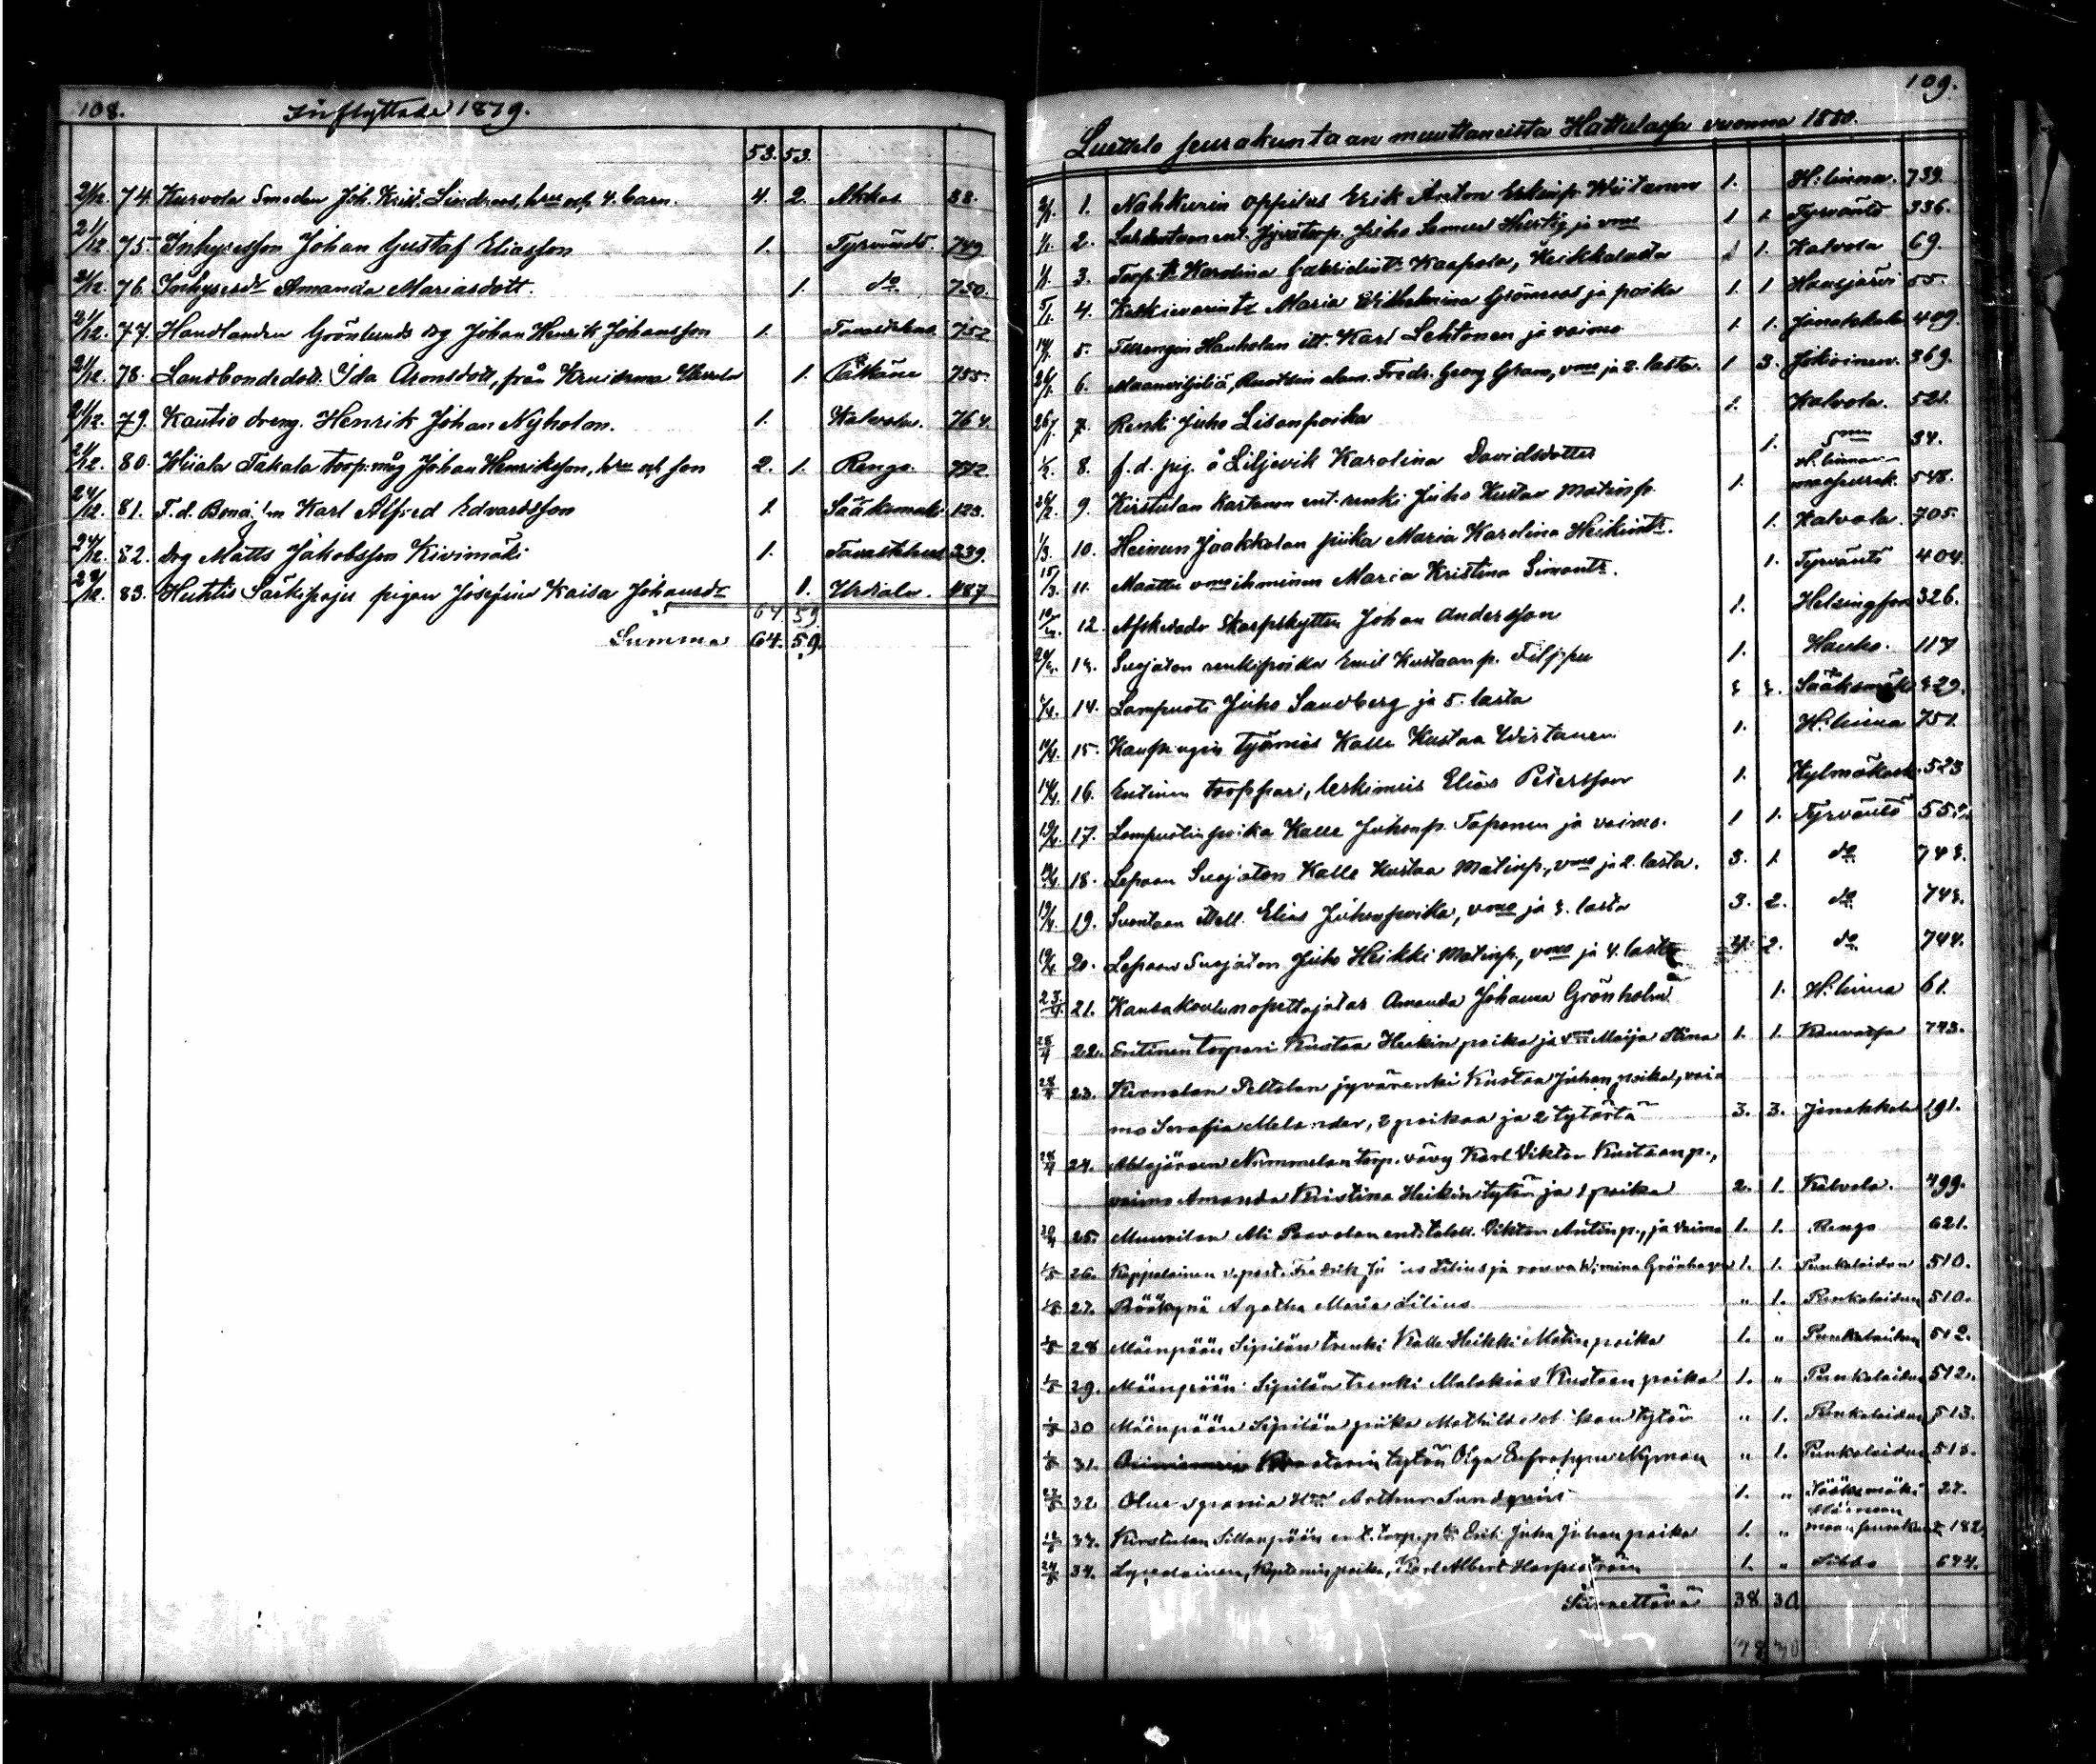 108. Inflyttade 1879.
53. 53.
21/12. 74. Kurvola Smeden Joh. Krist. Lindroos, hru och 4. barn. 4. 2. Akkas 88.
21/12 75. Inhysesson Johan Gustaf Eliasson 1. Tyrväntö. 749.
21/12 76. Inhysesdr Amanda Mariasdott. 1. do 750.
21/12. 77. Handlanden Grönlunds drg Johan Henrik Johansson 1. Tavastehus 752
21/12. 78. Landbondedott. Ida Aronsdott, från 1. Pälkäne 755.
21/12. 79. Rautio dreng. Henrik Johan Nyholm. 1. Kalvola. 764.
21/12. 80. Hiiala Takala torp. måg Johan Henriksson, hru och son 2. 1. Rengo 772.
24/12. 81. F.d. Karl Alfred Edvardsson 1. Sääksmäki 123.
24/12. 82. drg Matts Jakobsson Kivimäki 1. Tavastehus 339.
83. Huhtis pigan Josefina Kaisa Johansdr 1. Urdiala. 487
64. 59.
Summa 64. 59.
109.
Luettelo seurakuntaan muuttaneista Hattulassa vuonna 1880.
1. Nahkurin oppilas Erik Anton Erkinp. Wiitanen 1. H:linna. 739.
2. ent. Jyvätorp. Juho Samuel Hurtig ja vmo 1 1. Tyrväntö 336.
3. Torp. tr Karolina Gabrielintr Kaapola, 1 1. Kalvola 69.
5/1. 4. Maria Wilhelmina Grönroos ja poika 1. 1 Hausjärvi 55.
5. Turengin Hanholan itt. Karl Lehtonen ja vaimo 1. 1. Janakkala 409.
6. Maanviljeliä, Ruotsin alam. Fredr. Georg Gram, vmo ja 2. lasta. 1 3. Jokioinen 369.
26/1. 7. Renki Juho Liisanpoika 1. Kalvola. 521.
1/2. 8. f. d. pig. å Liljevik Karolina Davidsdotter 1. 34.
26/2. 9. Kirstulan Kartanon ent. renki Juho Kustaa Matinp. 1. H.linnan maaseurak. 548.
1/3. 10. Heinun Jaakkolan piika Maria Karolina Heikintr. 1. Kalvola. 705.
15/3. 11. vmoihminen Maria Kristina Simontr. 1. Tyrväntö 404.
12. Afskedade Skarpskytten Johan Andersson 1. Helsingfors 326.
13. Suojalan renkipoika Emil Kustaanp. Filppu 1. Hauho. 117
14. Lampuoti Juho Sandberg ja 5. lasta 3 3. Sääksmäki 329.
15. Kaupungin työmies Kalle Kustaa Wirtanen 1. H:linna 751.
16. Entinen torppari, leskimies Elias Petersson 1. Kylmäkoski. 523
19/4. 17. Lampuotinpoika Kalle Juhonp. Taponen ja vaimo. 1 1. Tyrväntö 55.
19/4 18. Lepaan Suojalan Kalle Kustaa Matinp., vmo ja 2. lasta. 3. 1. do 743.
19/4 19. Suontaan itsell. Elias Juhonpoika, vmo ja 3. lasta 3. 2. do 743.
19/4 20. Lepaan Suojalan Juho Heikki Matinp., vmo ja 4. lasta 4. 2. do 744.
23/4. 21. Kansakoulunopettajatar Amanda Johanna Grönholm 1. H:linna 61.
28/4 22. Entinen torpari Kustaa Heikinpoika ja vmo Maija Stina 1. 1. 743.
28/4 23. Peltolan jyvärenki Kustaa Juhanpoika, vai
mo Serafia Melander, 2 poikaa ja 2 tytärtä 3. 3. Janakkala 191.
28/4 24. Ahlajärven Nummelan torp. vävy Karl Viktor Kustaanp.,
vaimo Amanda Kristina Heikintytär ja 1 poika 2. 1. Kalvola. 499.
30/4 25. Muuvilan Ali Paavolan ent. talell. Viktor Antinp., ja vaimo 1. 1. Rengo 621.
1/5 26. Kappalainen v.past. Fredrik Lilius ja rouva Grönhagen 1. 1. Punkalaidun 510.
1/5 27. Röökynä Agatha Maria Lilius " 1. Punkalaidun 510.
1/5 28 Mäenpään Sipilän trenki Kalle Heikki Matinpoika 1. " Punkalaidun 512.
1/5 29. Mäenpään Sipilän trenki Malakias Kustaanpoika 1. " Punkalaidun 512.
1/5 30 Mäenpään Sipilän piika Mathilda tytär " 1. Punkalaidun 513.
1/5 31. tytär Olga Eufrosyne Nyman " 1. Punkalaidun 513.
32. Arthur Sundqvist 1. " Sääksmäki 27.
33. Kirstulan Sillanpään ent. torp. p. Erik Juha Juhanpoika 1. " maaseurakunt. 182
34. Karl Albert 1. " Sibbo 674.
Siirrettävä 38 30
78 30